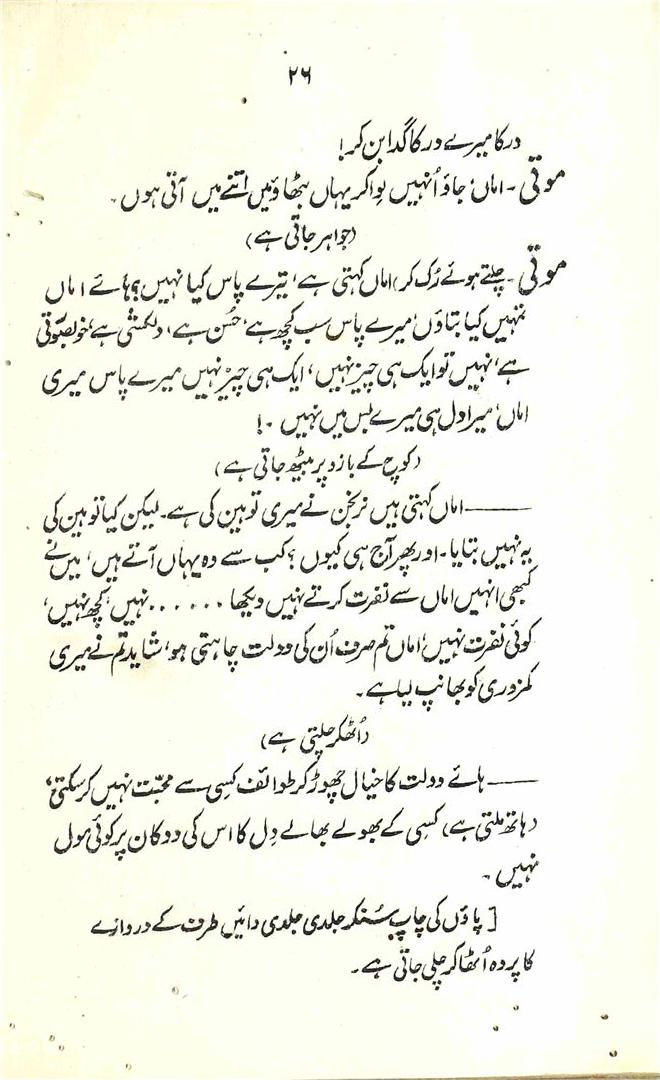 ۲۶
در کا میرے در کا گدا بن کر!
موتی ۔ اماں' جاؤ اُنہیں بِواکر یہاں بٹھاؤ میں اتنے میں آتی ہوں۔
(جواہر جاتی ہے)
موتی ۔ چلتے ہوئے رُک کر) اماں کہتی ہے' تیرے پاس کیا نہیں؟ ہائے اماں
تمہیں کیا بتاؤں' میرے پاس سب کچھ ہے' حُسن ہے' دلکشی ہے' خوبصورتی
ہے' نہیں تو ایک ہی چیز نہیں' ایک ہی چیز نہیں میرے پاس میری
اماں' میرا دل ہی میرے بس میں نہیں ۔!
(کوچ کے بازو پر بیٹھ جاتی ہے)
——اماں کہتی ہیں نرنجن نے میری توہین کی ہے۔ لیکن کیا توہین کی
یہ نہیں بتایا۔ اور پھر آج ہی کیوں؟ کب سے وہ یہاں آتے ہیں' میں نے
کبھی انہیں اماں سے نفرت کرتے نہیں دیکھا ...... نہیں' کچھ نہیں'
کوئی نفرت نہیں' اماں تم صرف اُن کی دولت چاہتی ہو' شاید تم نے میری
کمزوری کو بھانپ لیا ہے۔
(اُٹھ کر چلتی ہے)
—— ہائے دولت کا خیال چھوڑ کر طوائف کسِی سے محبّت نہیں کرسکتی'
(ہاتھ ملتی ہے) کسِی کے بھولے بھالے دِل کا اس کی دوکان پر کوئی مول
نہیں ۔
[ پاؤں کی چاپ سُنکر جلدی جلدی دائیں طرف کے دروازے
کا پردہ اُٹھا کر چلی جاتی ہے۔